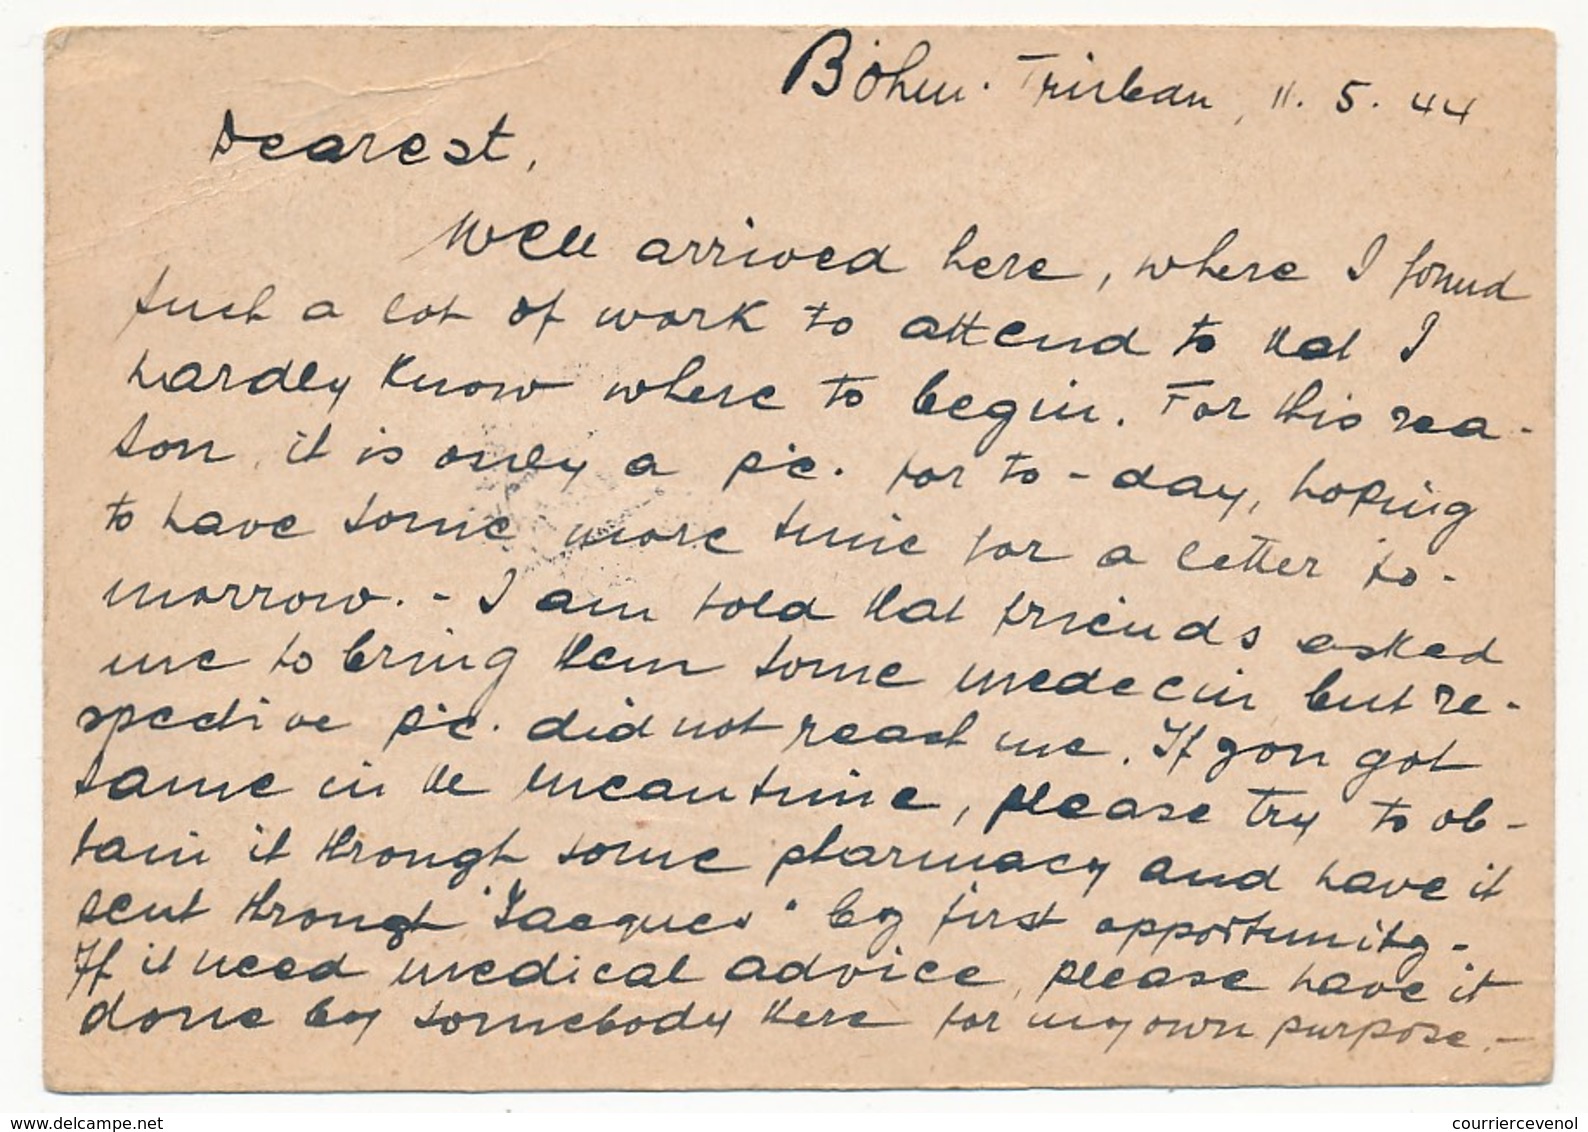 Böhm. Trübau, 11. 5. 44
Dearest,
Well arrived here, where I found
such a lot of work to attend to that I
hardly know where to begin. For this rea-
son, it is only a pic. for to-day, hoping
to have some more time for a letter to-
morrow. - I am told that friends asked
me to bring them some medecin but re-
spective pic. did not reach me. If you got
same in the meantime, please try to ob-
tain it through some pharmacy and have it
sent through "Jacques" by first opportunity -
If it need medical advice, please have it
done by somebody there for my own purpose. -
www.delcampe.net
courriercevenol